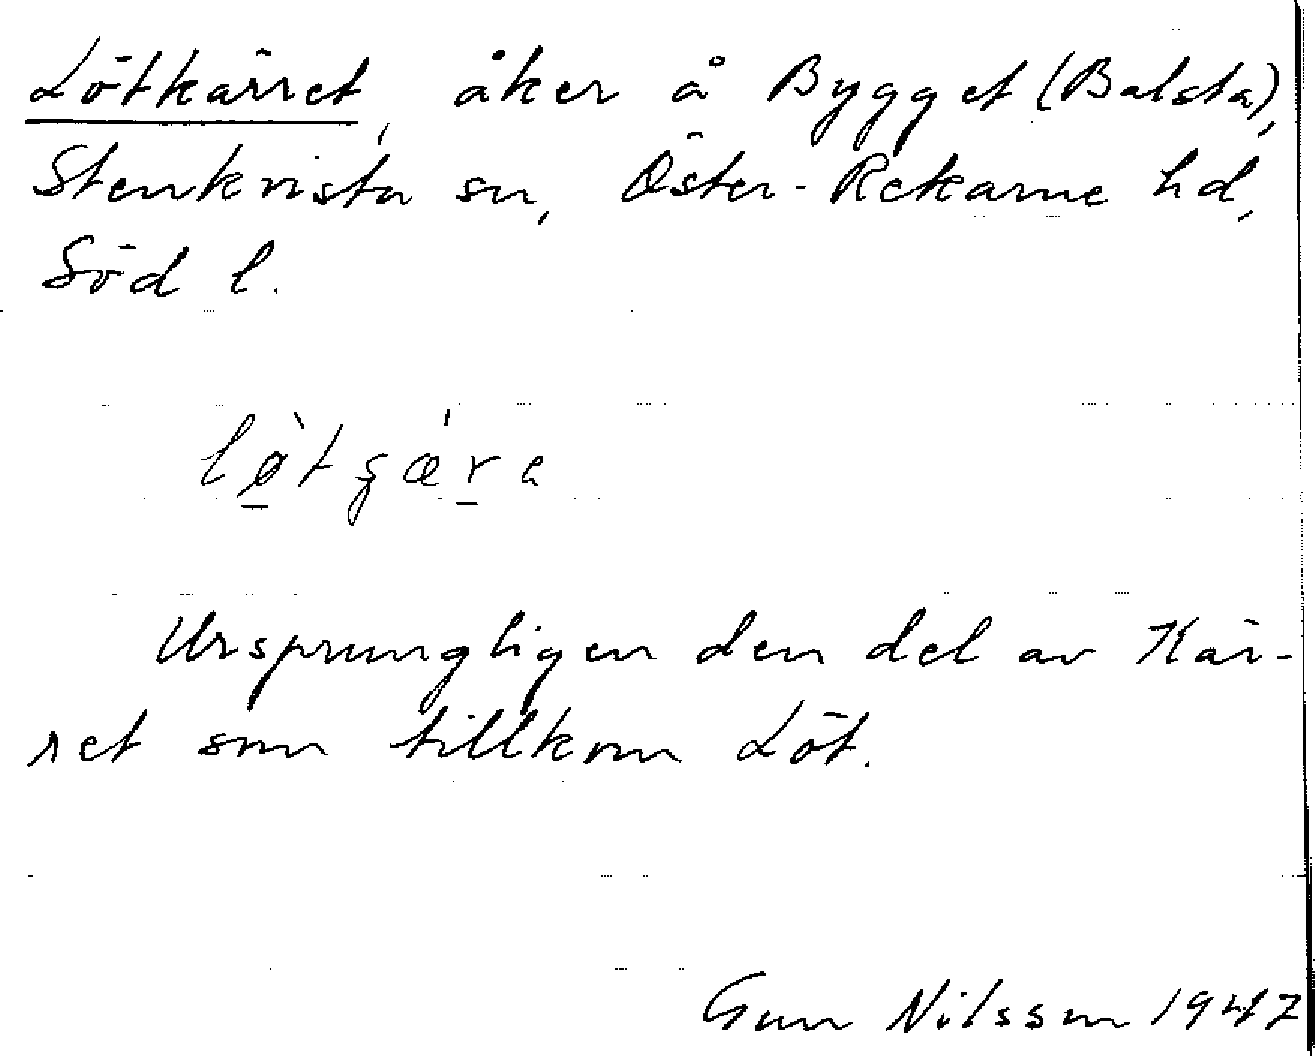 Lötkärret, åker å Bygget (Balsta),
Stenkvista sn, Öster-Rekarne hd,
Söd l.
lø̀tʂǽra
Ursprungligen den del av Kär-
ret som tillkom Löt.
Gun Nilsson 1947